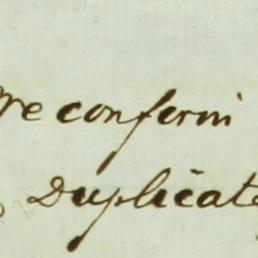 We confirm
Duplicate